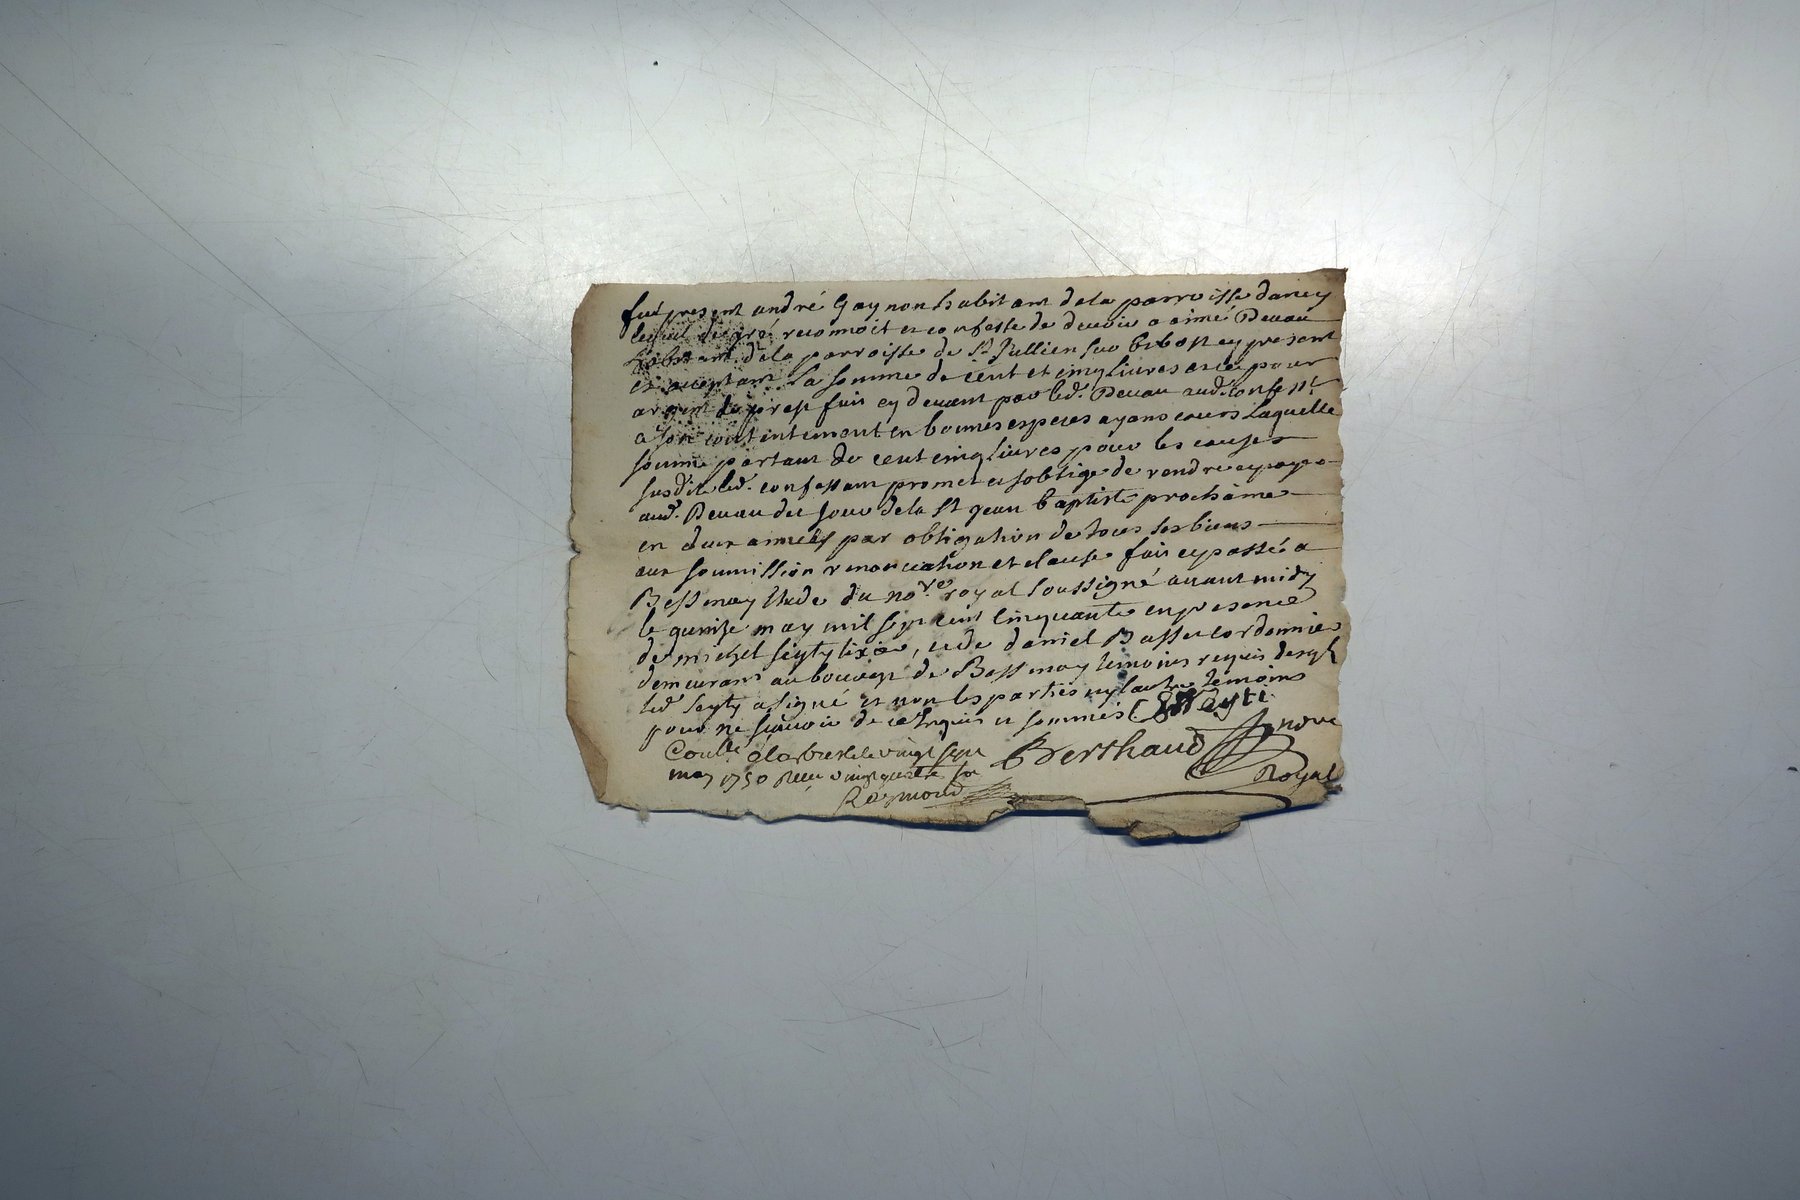 fut present andré Gaynon habitant dela parroisse dancy
lequel de gré reconnoit et confesse de devoir a aimé Devau
habitant dela parroisse de St Jullien sur bibost cy present
et acceptant la somme de cent et cinq livres et ce pour
argent de prest fait cy devant par led. Devau aud. confesst
a son contentement en bonnes especes ayans cours laquelle
somme portant de cent cinq livres pour les causes
susdite led. confessant promet et soblige de rendre et payer
aud. Devau du jour dela St jean baptiste prochaine
en deux années par obligation de tous ses biens
aux soumission renonciation et clause fait et passé a
Bessenay etude du nore royal soussigné avant midy
le quinze may mil sept cent cinquante en presence
de michel seyty, et de daniel Basset cordonnier
demeurans au bourg de Bessenay temoins requis
led. Seyty a signé et non les parties ny lautre temoins
pour ne scavoir de ce enquis et sommés Seyti
Berthaud nore
Royal
Conllé a larbresle le vingt sept
may 1750 Reçu vingt quatre s
Reymond